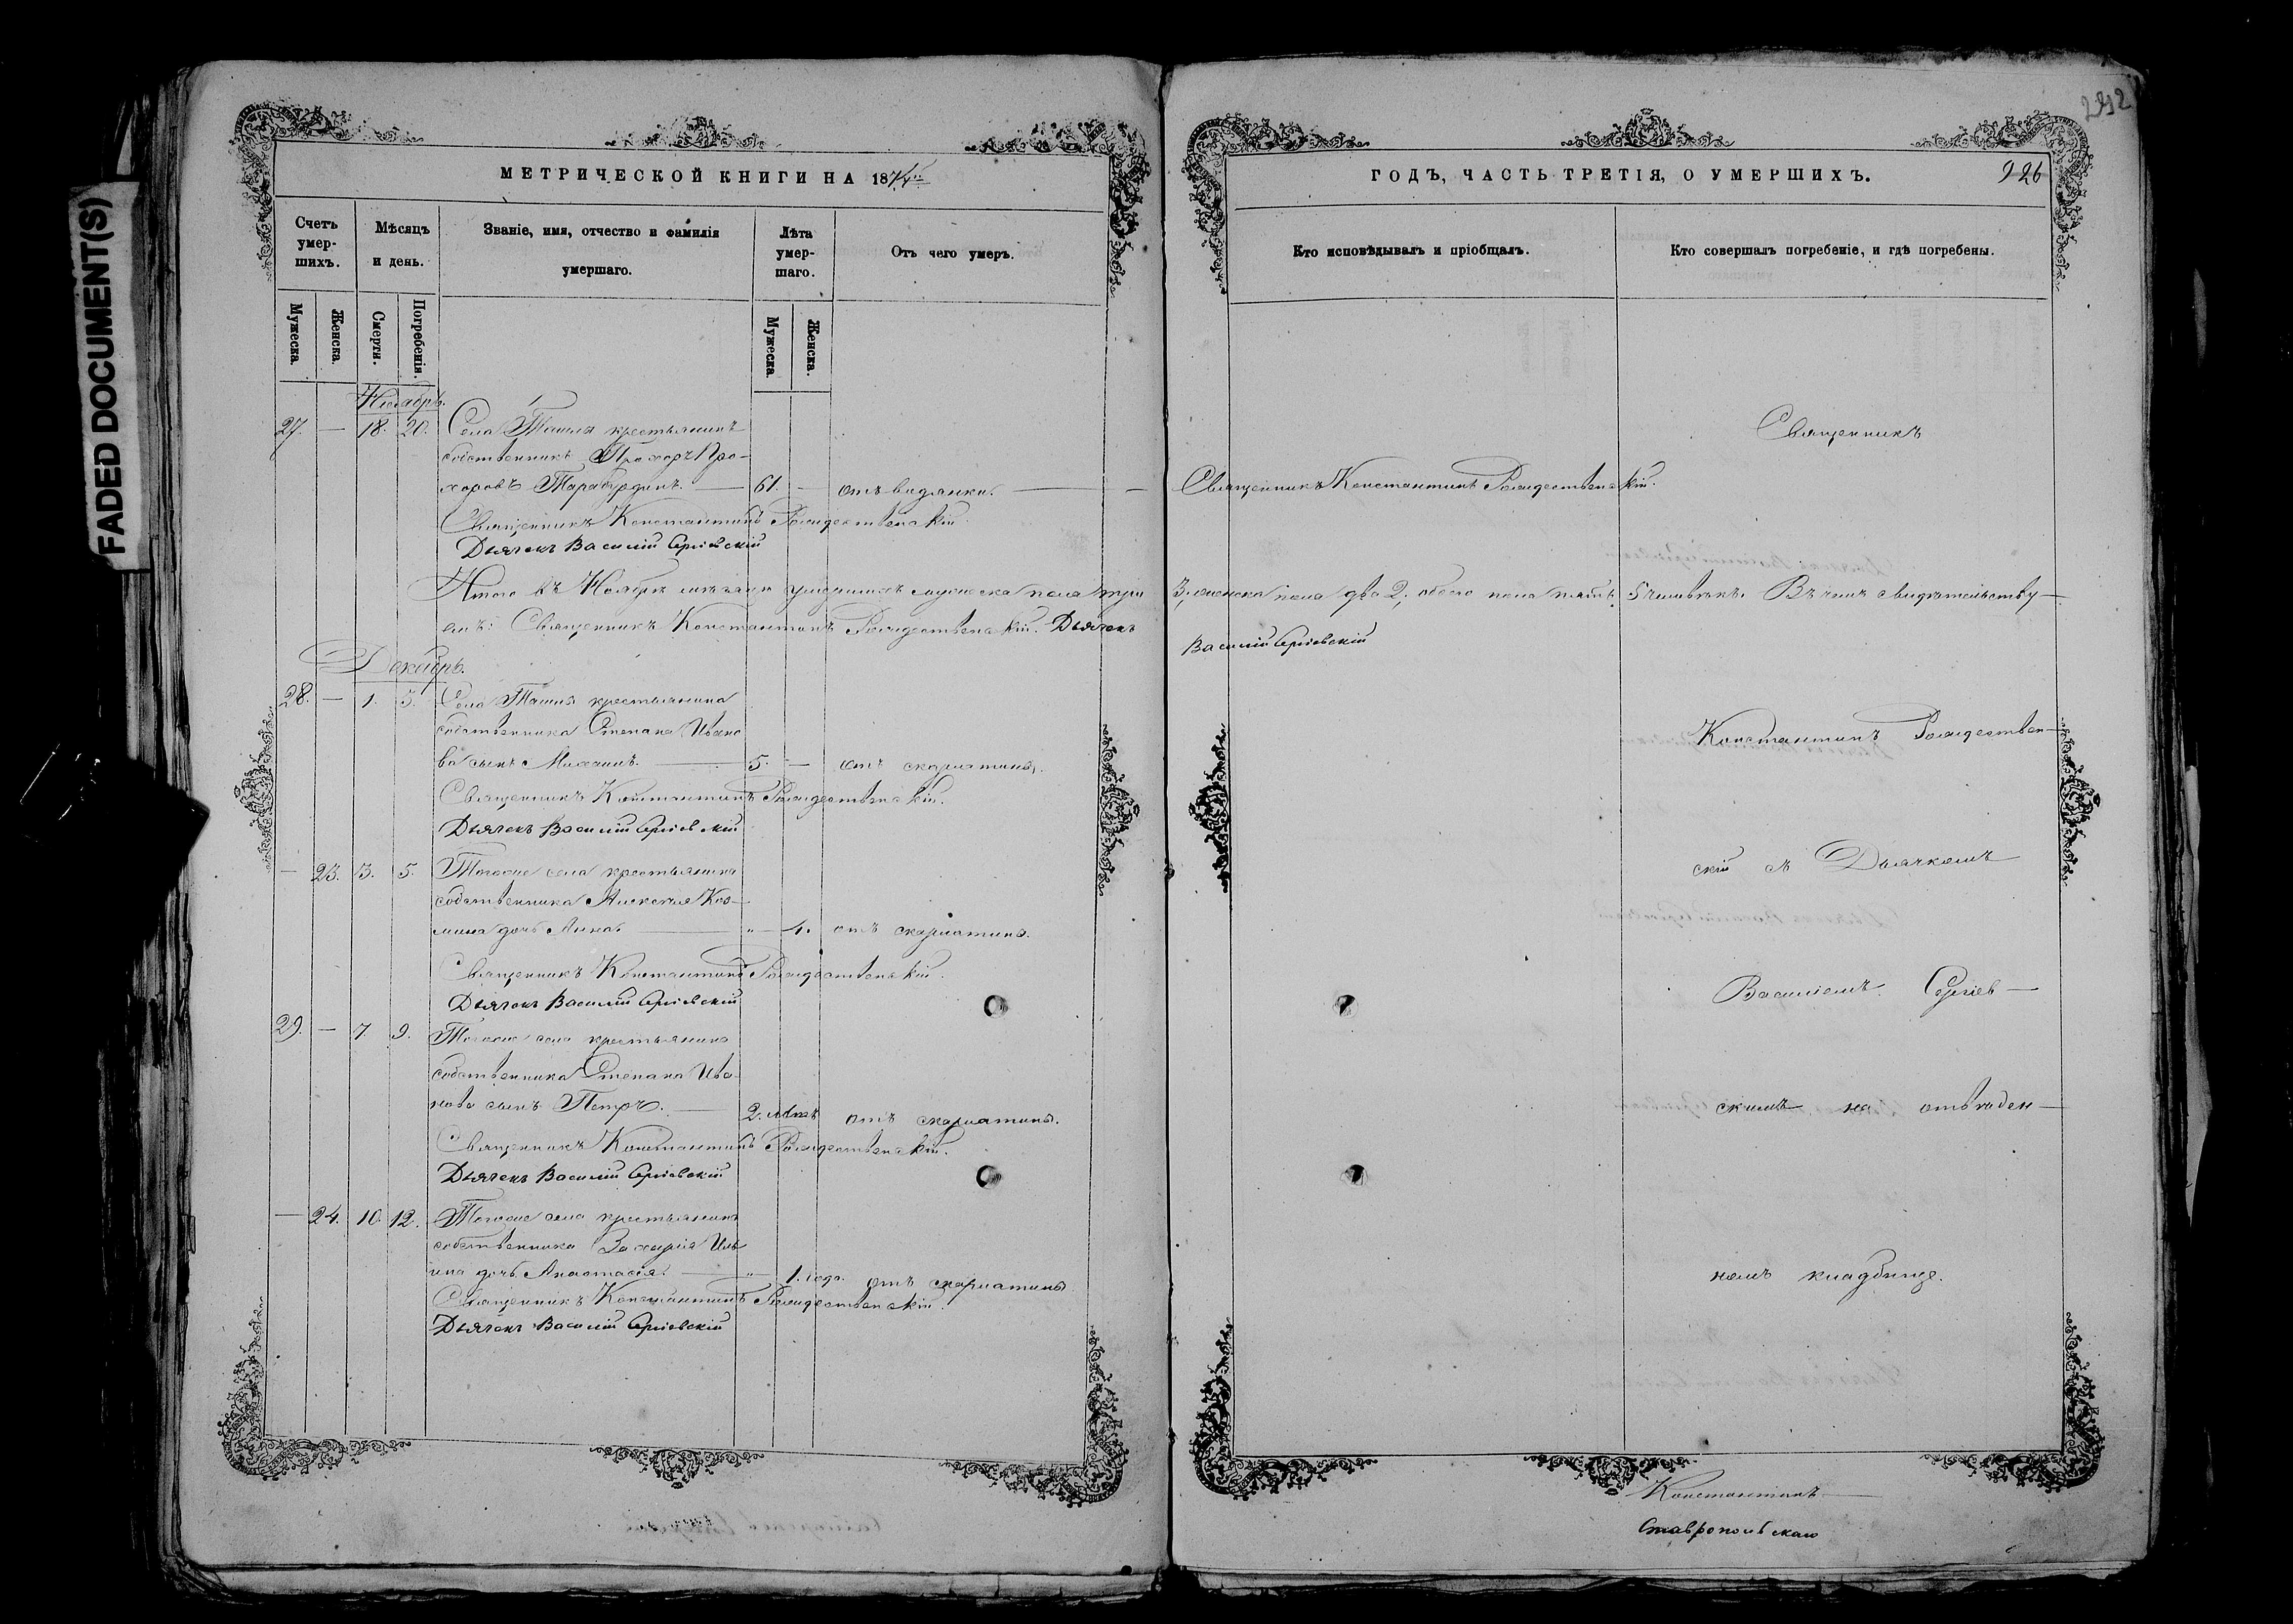 FADED DOCUMENT(S)
МЕТРИЧЕСКОЙ КНИГИ НА 1874й
Счетъ умер-шихъ.
Мѣсяцъ и день.
Званіе, имя, отчество и фамилія умершаго.
Лѣта умер-шаго.
Отъ чего умеръ.
Мужеска.
Женска.
Смерти.
Погребенія.
Мужеска.
Женска.
Ноябрь.
27. — 18. 20. Села Ташля крестьянинъ
собственникъ Прохоръ Про-
хоровъ — 61. — отъ водянки. —
Священникъ Константинъ Рождественскій.
Дьячекъ Василій Сергіевскій
Итого въ Ноябрѣ мѣсяцѣ умершихъ мужеска пола три
емъ: Священникъ Константинъ Рождественскій. Дьячекъ
Декабрь.
28. — 1. 3. Села Ташля крестьянина
собственника Степана Ивано
ва сынъ Михаилъ. — 5. — отъ скарлатины.
Священникъ Константинъ Рождественскій.
Дьячекъ Василій Сергіевскій
— 23. 3. 5. Тогоже села крестьянина
собственника Алексѣя Коз-
мина дочь Анна. — „ — 4. отъ скарлатины.
Священникъ Константинъ Рождественскій.
Дьячекъ Василій Сергіевскій
29. — 7. 9. Тогоже села крестьянина
собственника Степана Ива-
нова сынъ Петръ. — 2. лѣтъ отъ скарлатины.
Священникъ Константинъ Рождественскій.
Дьячекъ Василій Сергіевскій
— 24. 10. 12. Тогоже села крестьянина
собственника Захарія Иль
ина дочь Анастасія. — „ — 1. года. отъ скарлатины
Священникъ Константинъ Рождественскій.
Дьячекъ Василій Сергіевскій
292
ГОДЪ, ЧАСТЬ ТРЕТІЯ, О УМЕРШИХЪ.
926
Кто исповѣдывалъ и пріобщалъ.
Кто совершалъ погребеніе, и гдѣ погребены.
Священникъ
— Священникъ Константинъ Рождественскій.
3, женска пола два 2, обоего пола пять 5 человѣкъ. Въ чемъ свидѣтельству—
Василій Сергіевскій
Константинъ Рождествен—
скій съ Дьячкомъ
Василіемъ Сергіев—
скимъ на отведен—
номъ кладбище.
Константинъ —
Ставропольскаго